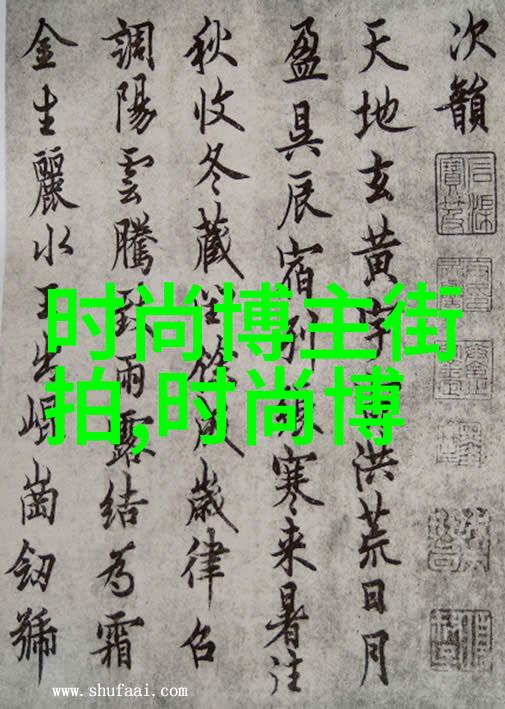 次韻
天地玄黃宇洪荒日月
盈昃辰宿列張寒来暑往
秋收冬藏閏餘成歲律召
調陽雲騰致雨露結為霜
金生麗水玉出崐崗劒號
时尚博主街
拍,时尚博
www.shufaai.com